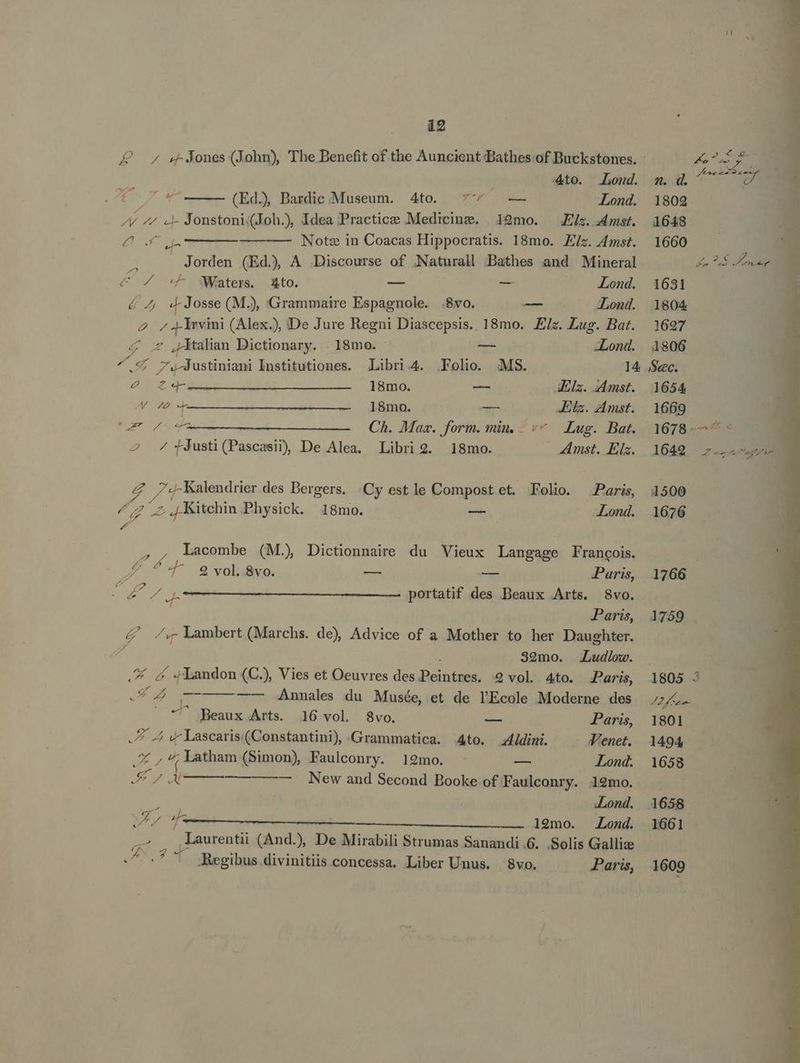 12
Jones (John), The Benefit of the Auncient Bathes of Buckstones.
4to. Lond. n. d.
—— (Ed.), Bardic Museum. 4to. — Lond. 1802
Jonstoni (Joh.), Idea Practicæ Medicinæ. 12mo. Elz. Amst. 1648
—— —— Notæ in Coacas Hippocratis. 18mo. Elz. Amst. 1660
Jorden (Ed.), A Discourse of Naturall Bathes and Mineral
Waters. 4to. — — Lond. 1631
Josse (M.), Grammaire Espagnole. 8vo. — Lond. 1804
Irvini (Alex.), De Jure Regni Diascepsis. 18mo. Elz. Lug. Bat. 1627
Italian Dictionary. 18mo. — Lond. 1806
Justiniani Institutiones. Libri 4. Folio. MS. 14 Sæc.
—— 18mo. — Elz. Amst. 1654
—— 18mo. — Elz. Amst. 1669
—— Ch. Max. form. min. Lug. Bat. 1678
Justi (Pascasii), De Alea. Libri 2. 18mo. Amst. Elz. 1642
Kalendrier des Bergers. Cy est le Compost et. Folio. Paris, 1500
Kitchin Physick. 18mo. — Lond. 1676
Lacombe (M.), Dictionnaire du Vieux Langage François.
2 vol. 8vo. — — Paris, 1766
—— portatif des Beaux Arts. 8vo.
Paris, 1759
Lambert (Marchs. de), Advice of a Mother to her Daughter.
32mo. Ludlow.
Landon (C.), Vies et Oeuvres des Peintres. 2 vol. 4to. Paris, 1805
—— —— Annales du Musée, et de l'Ecole Moderne des
Beaux Arts. 16 vol. 8vo. — Paris, 1801
Lascaris (Constantini), Grammatica. 4to. Aldini. Venet. 1494
Latham (Simon), Faulconry. 12mo. — Lond. 1658
—— New and Second Booke of Faulconry. 12mo.
Lond. 1658
—— 12mo. Lond. 1661
Laurentii (And.), De Mirabili Strumas Sanandi 6. Solis Galliæ
Regibus divinitiis concessa. Liber Unus. 8vo. Paris, 1609